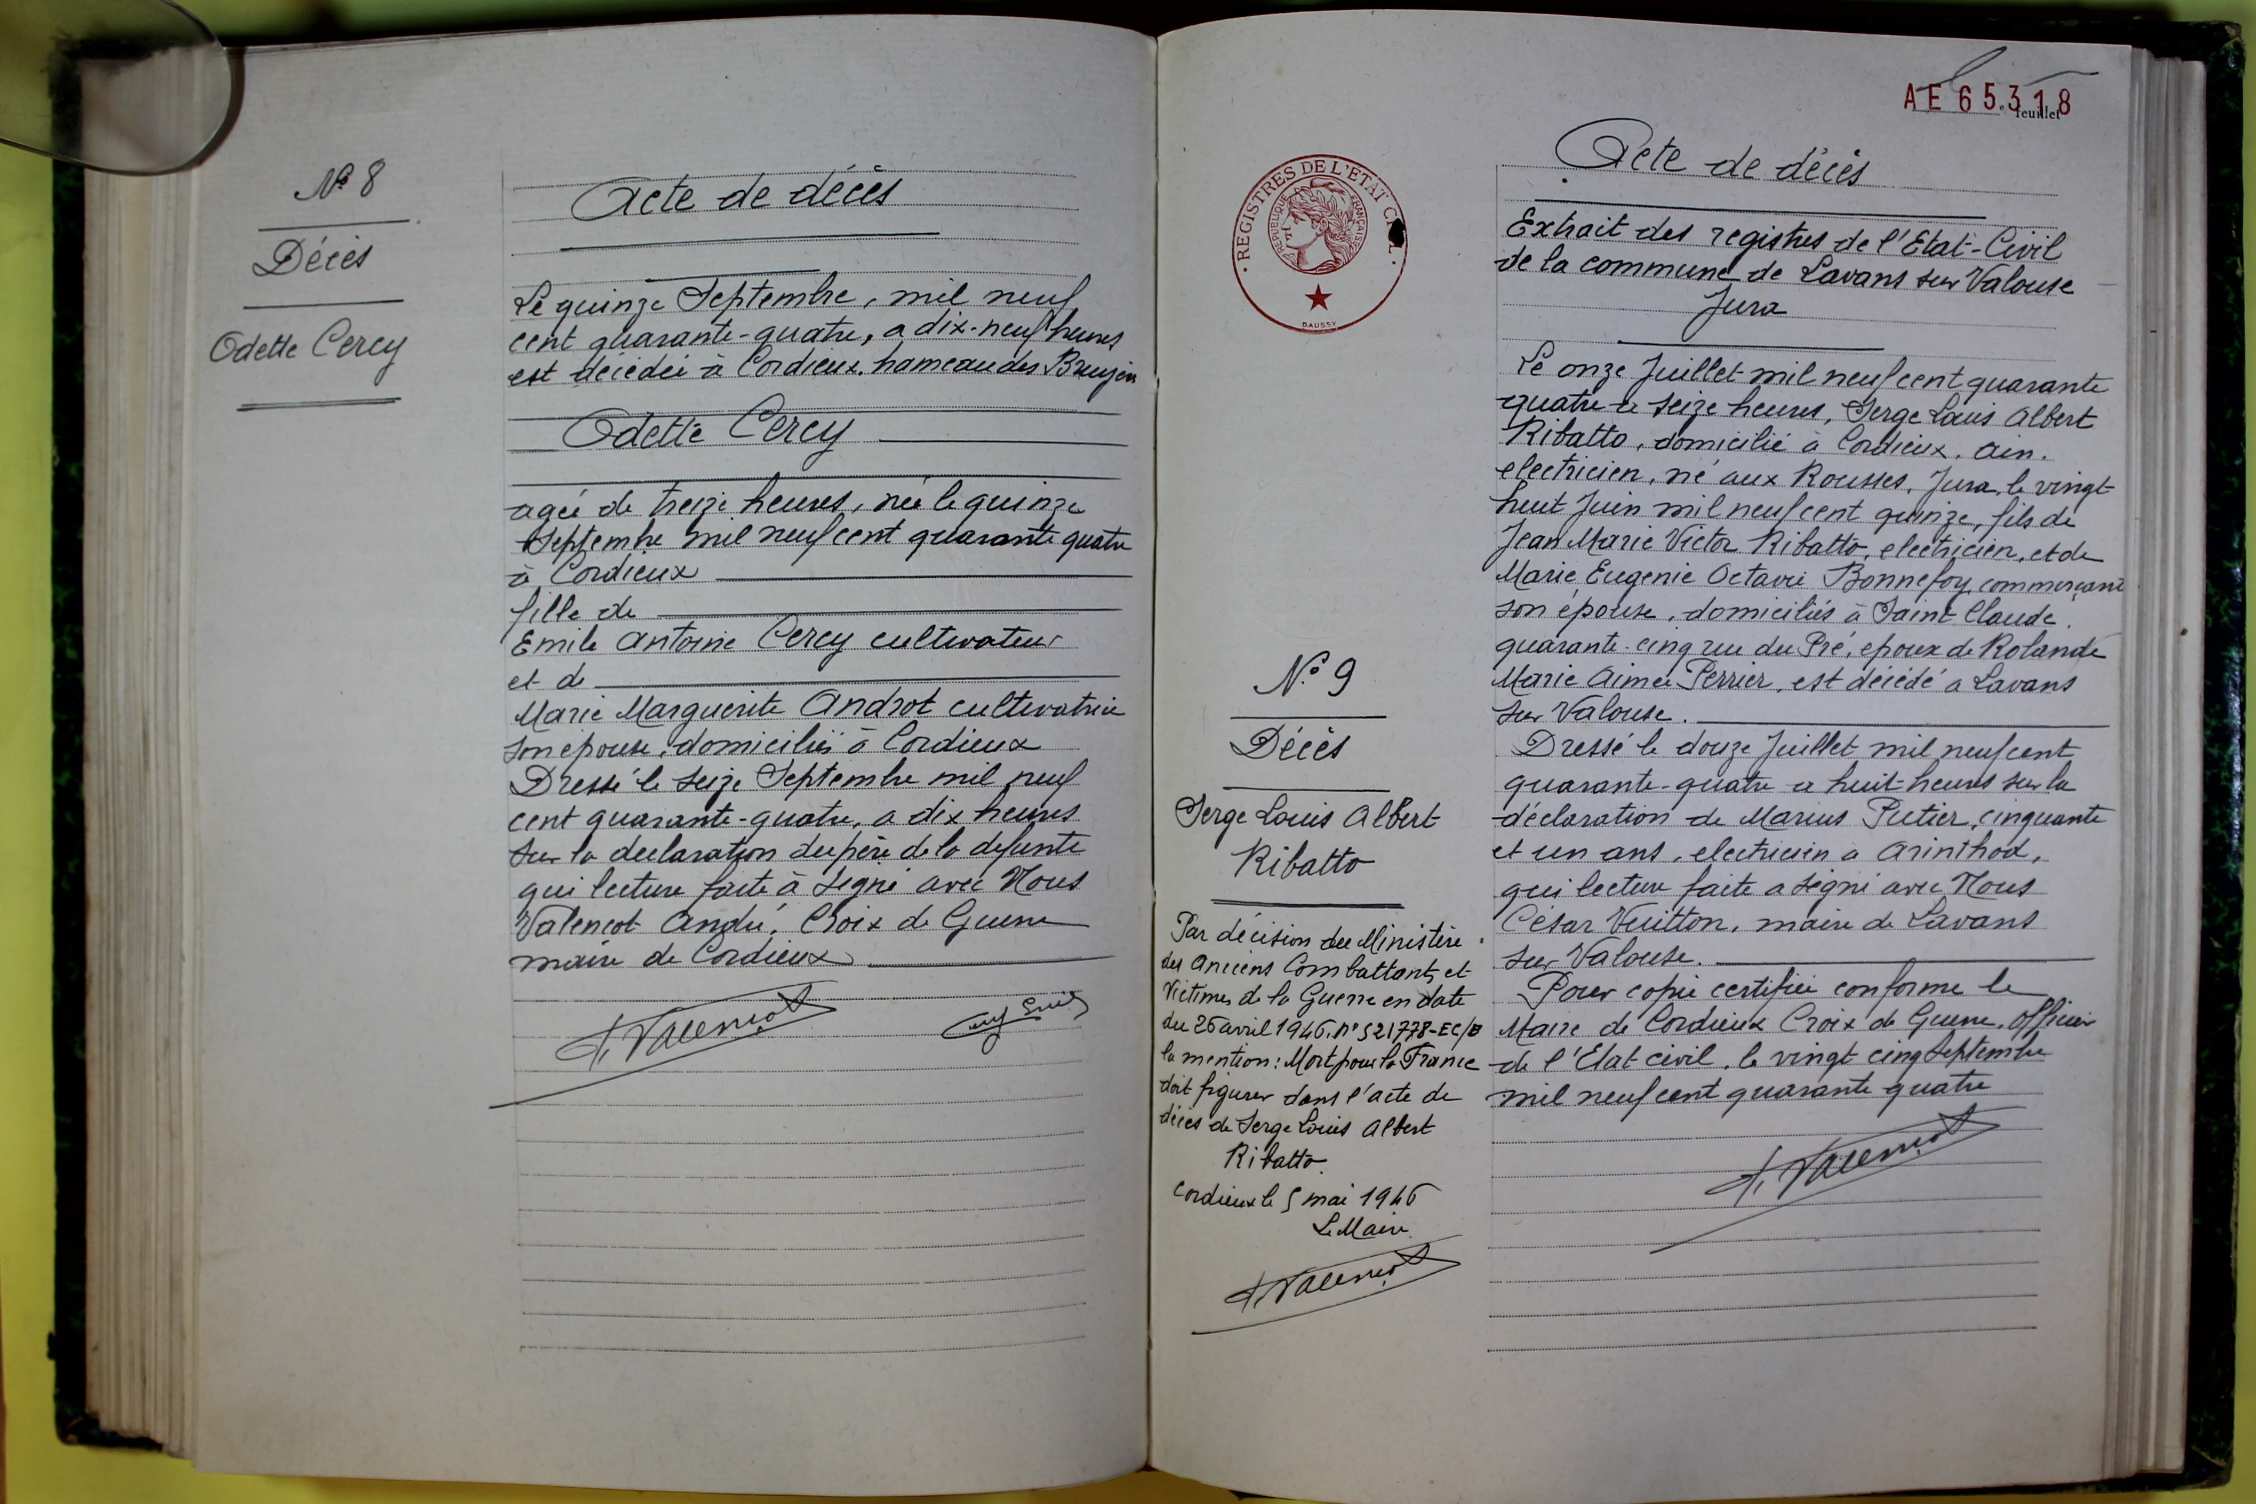 N° 8
Décès
Odette Cercy
Acte de décès
Le quinze Septembre, mil neuf
cent quarante-quatre, a dix-neuf heures
est décédée à Cordieux. hameau des
Odette Cercy
agée de treize heures, née le quinze
Septembre mil neuf cent quarante quatre
à Cordieux
fille de
Emile Antoine Cercy cultivateur
et de
Marie Marguerite Androt cultivatrice
son épouse, domiciliés à Cordieux
Dressé le seize Septembre mil neuf
cent quarante-quatre, a dix heures
sur la declaration du père de la defunte
qui lecture faite à signé avec Nous
Valencot André, Croix de Guerre
maire de Cordieux
A. Valencot
AE 65.318
feuillet
REGISTRES DE L'ETAT CIVIL
REPUBLIQUE FRANÇAISE
DAUSSY
N° 9
Décès
Serge Louis Albert
Ribatto
Par décision du Ministère
des Anciens Combattants et
Victimes de la Guerre en date
du 26 avril 1946. N° 521778-EC/B
la mention: Mort pour la France
doit figurer dans l'acte de
décès de Serge Louis Albert
Ribatto.
Cordieux le 5 mai 1946
Le Maire.
A. Valencot
Acte de décès
Extrait des registres de l'Etat-Civil
de la commune de Lavans sur Valouse
Jura
Le onze Juillet mil neuf cent quarante
quatre à seize heures, Serge Louis Albert
Ribatto, domicilié à Cordieux. Ain.
electricien, né aux Rousses, Jura, le vingt
huit Juin mil neuf cent quinze, fils de
Jean Marie Victor Ribatto, electricien, et de
Marie Eugenie Octavie Bonnefoy, commerçante
son épouse, domiciliés à Saint Claude.
quarante-cinq rue du Pré, epoux de Rolande
Marie Aimée Perrier, est décédé a Lavans
sur Valouse.
Dressé le douze Juillet mil neuf cent
quarante-quatre a huit heures sur la
déclaration de Marius Putier, cinquante
et un ans, electricien a Arinthod,
qui lecture faite a signé avec Nous
César Vuitton, maire de Lavans
sur Valouse.
Pour copie certifiée conforme le
Maire de Cordieux Croix de Guerre, Officier
de l'Etat civil, le vingt cinq Septembre
mil neuf cent quarante quatre
A. Valencot